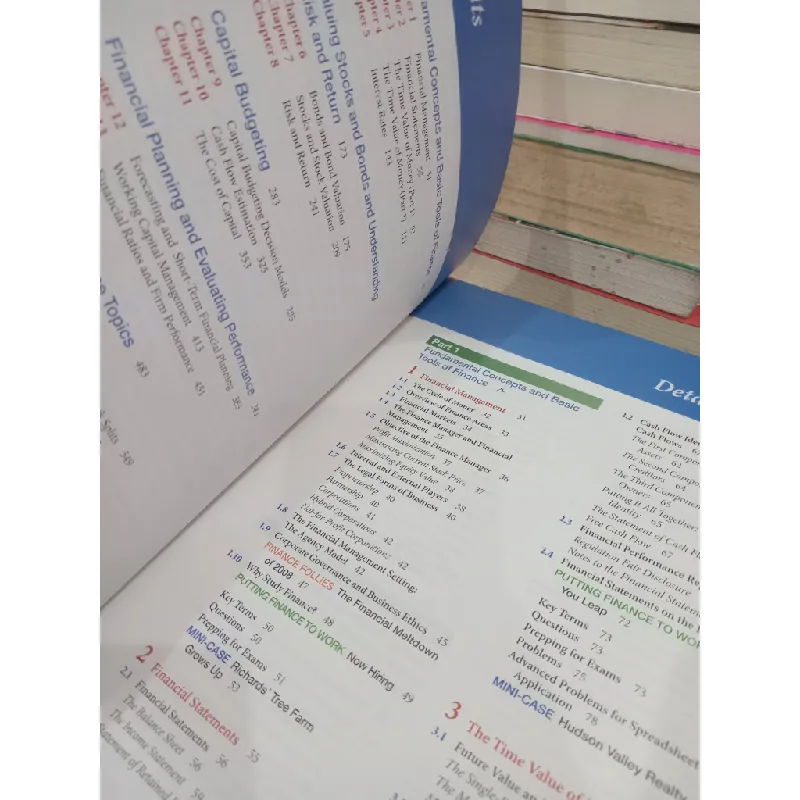 nts
amental Concepts and Basic Tools of Finance
Financial Management 31
Financial Statements 55
The Time Value of Money (Part 1)
The Time Value of Money (Part 2)
Chapter 5 Interest Rates 143
aluing Stocks and Bonds and Understanding
Risk and Return 173
Chapter 6 Bonds and Bond Valuation 175
Chapter 7 Stocks and Stock Valuation 209
Chapter 8 Risk and Return 241
Capital Budgeting 283
Chapter 9 Capital Budgeting Decision Models
Chapter 10 Cash Flow Estimation 325
Chapter 11 The Cost of Capital 353
Financial Planning and Evaluating Performance
apter 12 Forecasting and Short-Term Financial Planning
Working Capital Management 413
Financial Ratios and Firm Performance 451
e Topics 483
& Splits 509
Deta
Part 1
Fundamental Concepts and Basic
Tools of Finance
1 Financial Management 31
1.1 The Cycle of Money 32
1.2 Overview of Finance Areas 33
1.3 Financial Markets 34
1.4 The Finance Manager and Financial
Management 35
1.5 Objective of the Finance Manager 36
Profit Maximization 37
Maximizing Current Stock Price 37
Maximizing Equity Value 38
1.6 Internal and External Players 38
1.7 The Legal Forms of Business 40
Proprietorship 40
Partnership 40
Corporations 41
Hybrid Corporations 42
Not-for-Profit Corporations 42
1.8 The Financial Management Setting:
The Agency Model 42
1.9 Corporate Governance and Business Ethics 45
FINANCE FOLLIES The Financial Meltdown
of 2008 47
1.10 Why Study Finance? 48
PUTTING FINANCE TO WORK Now Hiring 49
Key Terms 50
Questions 50
Prepping for Exams 51
MINI-CASE Richards' Tree Farm
Grows Up 53
2 Financial Statements 55
2.1 Financial Statements 56
The Balance Sheet 56
The Income Statement 59
Statement of Retained
2.2 Cash Flow Iden
Cash Flows 61
The First Component
Assets 61
The Second Compon
Creditors 64
The Third Component
Owners 65
Putting It All Together:
Identity 65
The Statement of Cash F
Free Cash Flow 67
2.3 Financial Performance Re
Regulation Fair Disclosure
Notes to the Financial Statem
2.4 Financial Statements on the I
PUTTING FINANCE TO WO
You Leap 72
Key Terms 73
Questions 73
Prepping for Exams 73
Problems 75
Advanced Problems for Spreadsheet
Application 78
MINI-CASE Hudson Valley Realty
3 The Time Value of
3.1 Future Value and
The Single-